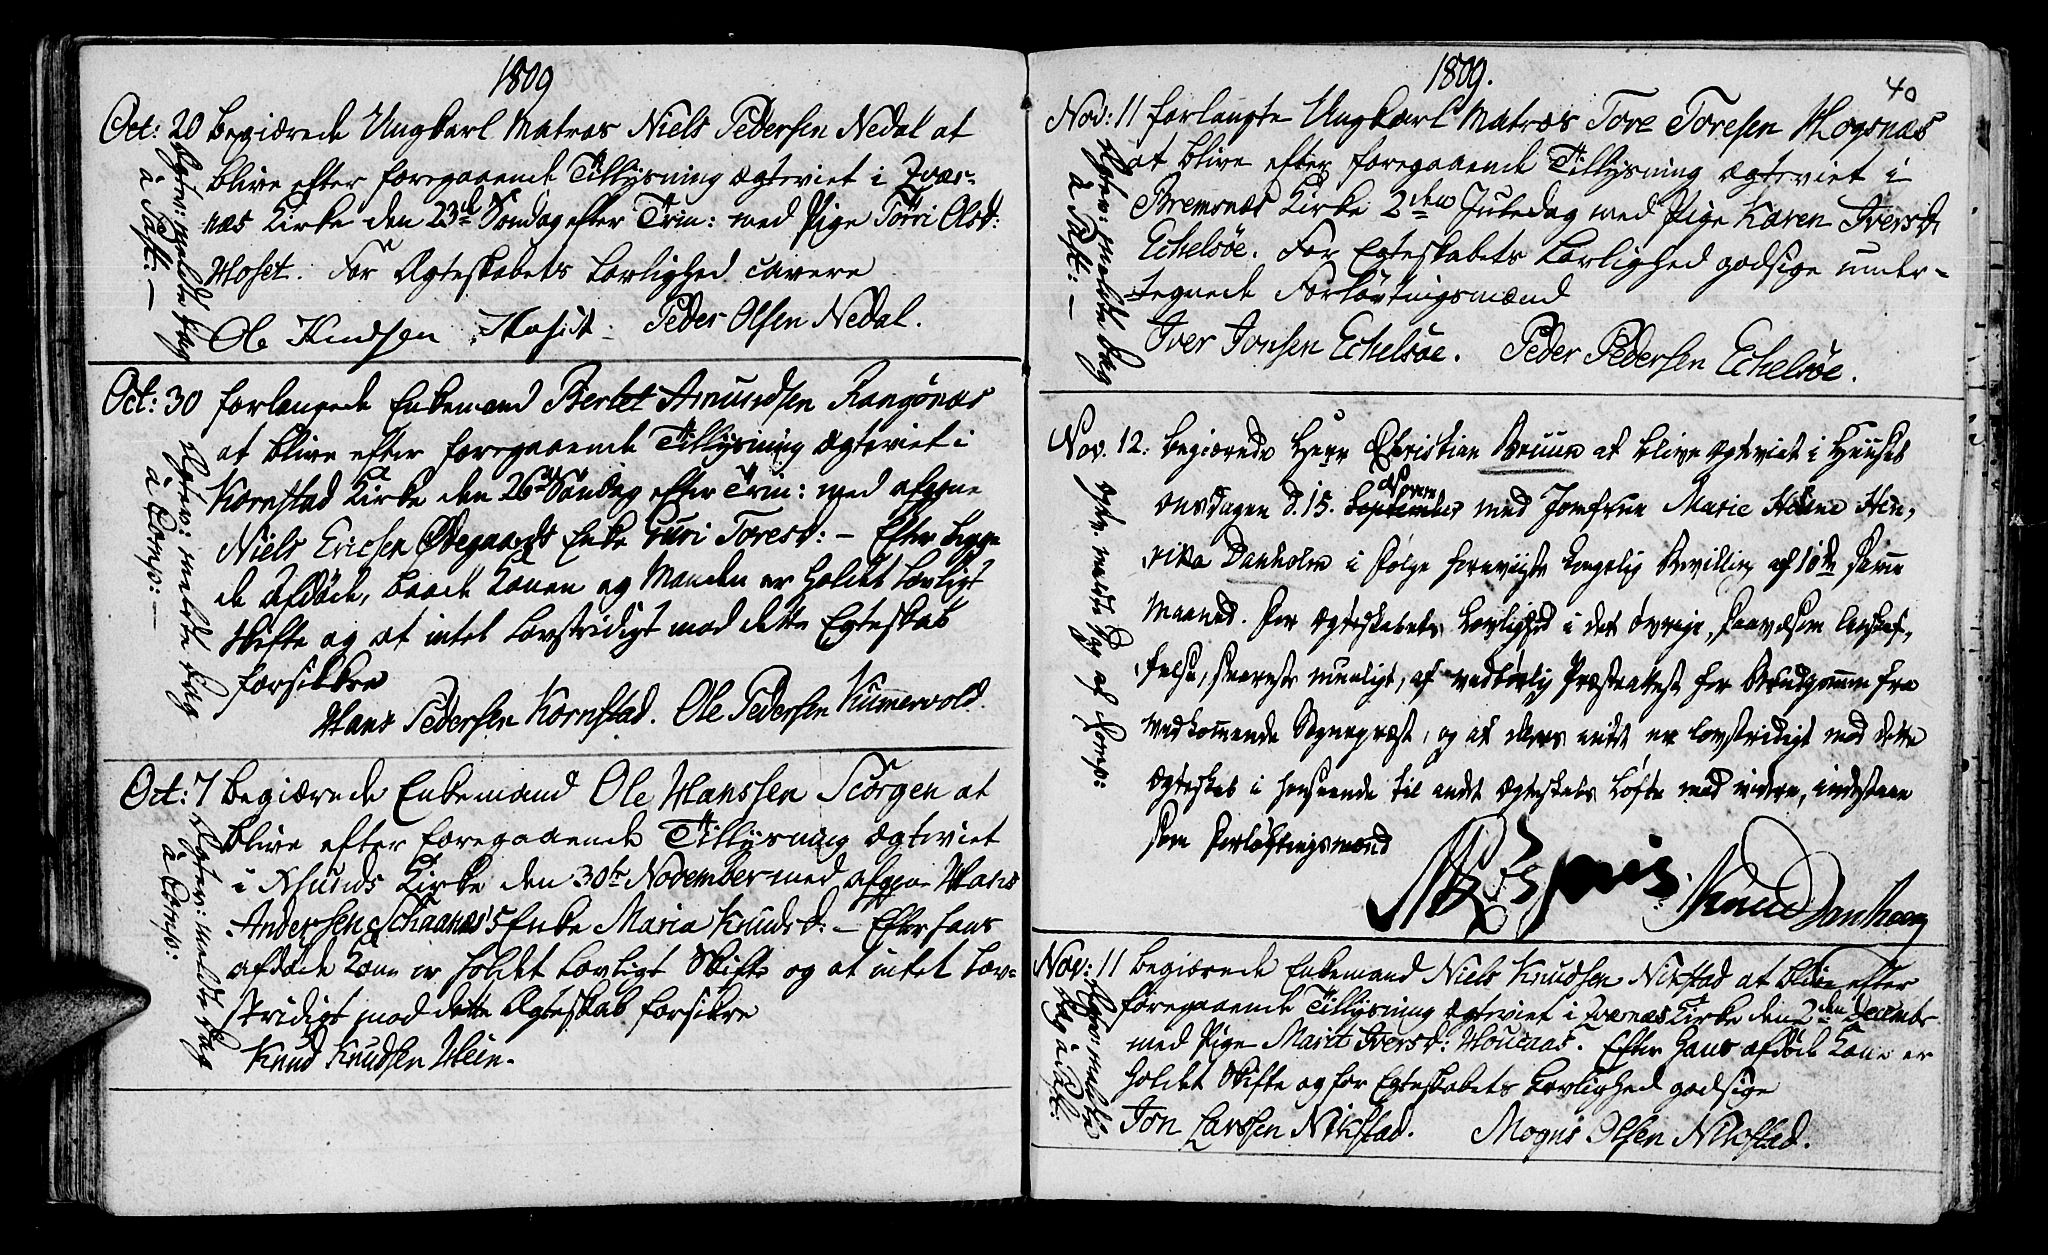 1809
Oct: 20 begiærede Ungkarl Matros Niels Pedersen Nedal at
blive efter foregaaende Tillysning ægteviet i Qvær-
næs Kirke den 23de Søndag efter Trin: med Pige Torri Olsd:
Hoset. For Ægteskabets Lovlighed cavere
Ole Knudsen Hoset Peder Olsen Nedal.
Ægtev: meldte Dag
à Past: —
Oct: 30 forlangede Enkemand Berlet Amundsen Rangønæs
at blive efter foregaaende Tillysning ægteviet i
Kornstad Kirke den 26de Søndag efter Trin: med afgne
Niels Ericsen Ødegaards Enke Guri Toresd: — Efter begge
de Afdøde, baade Konen og Manden er holdet lovligt
Skifte og at intet lovstridigt mod dette Egteskab
forsikkre
Hans Pedersen Kornstad. Ole Pedersen Kummervold.
Ægtev: meldte Dag
à Comp: —
Oct: 7 begiærede Enkemand Ole Hanssen Storgen at
blive efter foregaaende Tillysning ægteviet
i Kirke den 30te November med afgne Hans
Andersen Enke Maria Knudsd: — Efter hans
afdøde Kone er holdet lovligt Skifte og at intet lov-
stridigt mod dette Ægteskab forsikre
Knud Knudsen Hein.
Ægtev: meldte Dag
à Comp:
1809.
40
Nov: 11 forlangte Ungkarl Matros Tore Toresen Hogsnæs
at blive efter foregaaende Tillysning ægteviet i
Bremsnæs Kirke 2den Juledag med Pige Karen Iversd
Echelsøe. For Egteskabets Lovlighed godsige under-
tegnede Forløvningsmænd
Iver Jonsen Echelsøe. Peder Pedersen Echelsøe.
Ægtev: meldte Dag
à Past: —
Nov. 12. begiærede Herr Christian Bruun at blive ægteviet i Huuset
onsdagen d. 15. September Novem med Jomfrue Marie Helene Hen,
rika Danholm i Følge foreviiste kongelig Bevilling af 10de samme
Maaned. For Ægteskabets Lovlighed i det øvrige, saavelsom Anskaf,
felse, snarest mueligt, af vedbørlig Præsteattest for Brudgommen fra
vedkommende Sognepræst, og at ellers intet er lovstridigt mod dette
Ægteskab i henseende til andet Ægteskabs Løfte med videre, indestaae
som Forlovningsmænd
Knud
Ægtv. meldte Dag af Comp:
Nov: 11 begiærede Enkemand Niels Knudsen Nikstad at blive efter
foregaaende Tillysning ægteviet i Qvernæs Kirke den 2den Decembr
med Pige Marit Iversd: Houcaas. Efter hans afdøde Kone er
holdet Skifte og for Egteskabets Lovlighed godsige
Jon Larssen Nikstad. Mogns Olsen Nikstad.
Ægtev: meldte
Dag à Past: